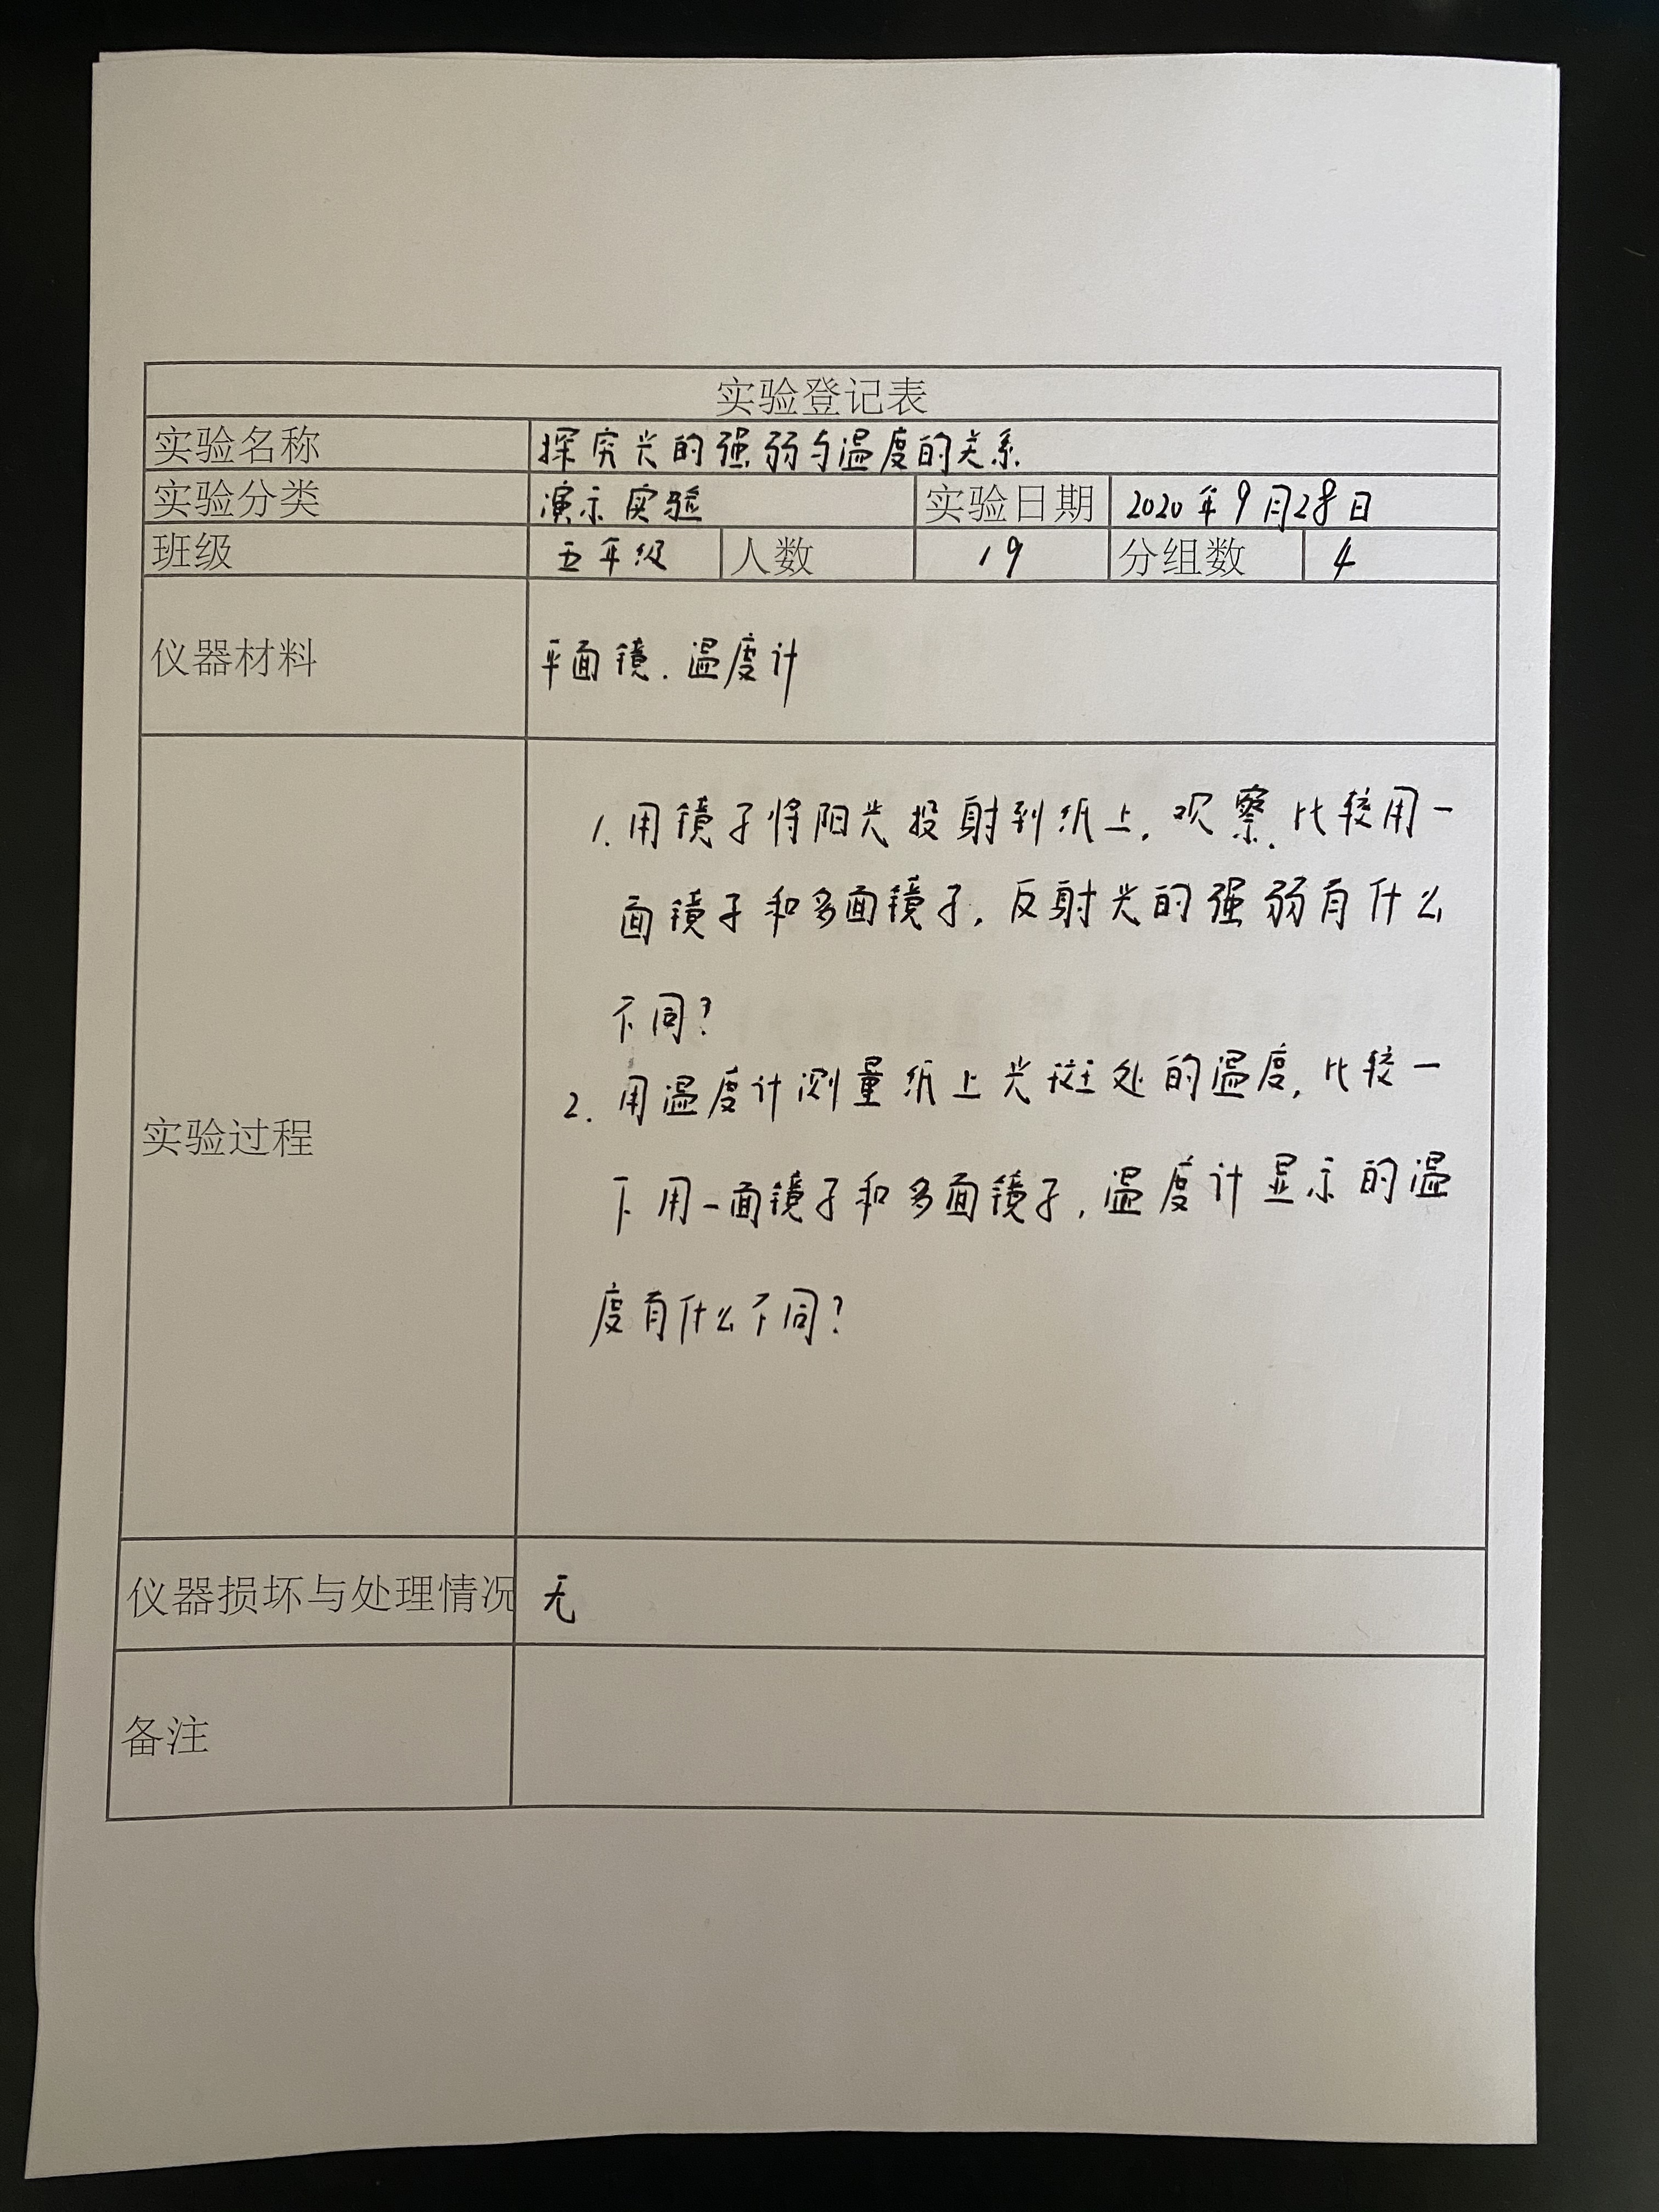 实验登记表
实验名称 探究光的强弱与温度的关系
实验分类 演示实验 实验日期 2020年9月28日
班级 五年级 人数 19 分组数 4
仪器材料 平面镜.温度计
实验过程
1.用镜子将阳光投射到纸上,观察.比较用一
面镜子和多面镜子,反射光的强弱有什么
不同?
2.用温度计测量纸上光斑处的温度,比较一
下用一面镜子和多面镜子,温度计显示的温
度有什么不同?
仪器损坏与处理情况 无
备注